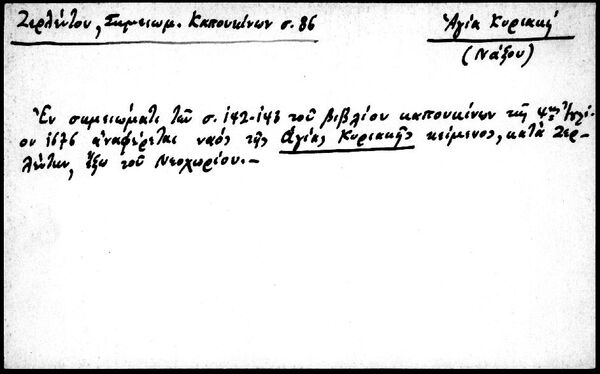 Ζερλέντου, Σημειωμ. Καπουκίνων σ. 86
Ἁγία Κυριακή
(Νάξου)
Ἐν σημειώματι τῶν σ. 142-143 τοῦ βιβλίου καπουκίνων τῆς
ου 1676 ἀναφέρεται ναός τῆς Ἁγίας Κυριακῆς κείμενος, κατὰ Ζερ-
λέντην, ἔξω τοῦ Νεοχωρίου.—